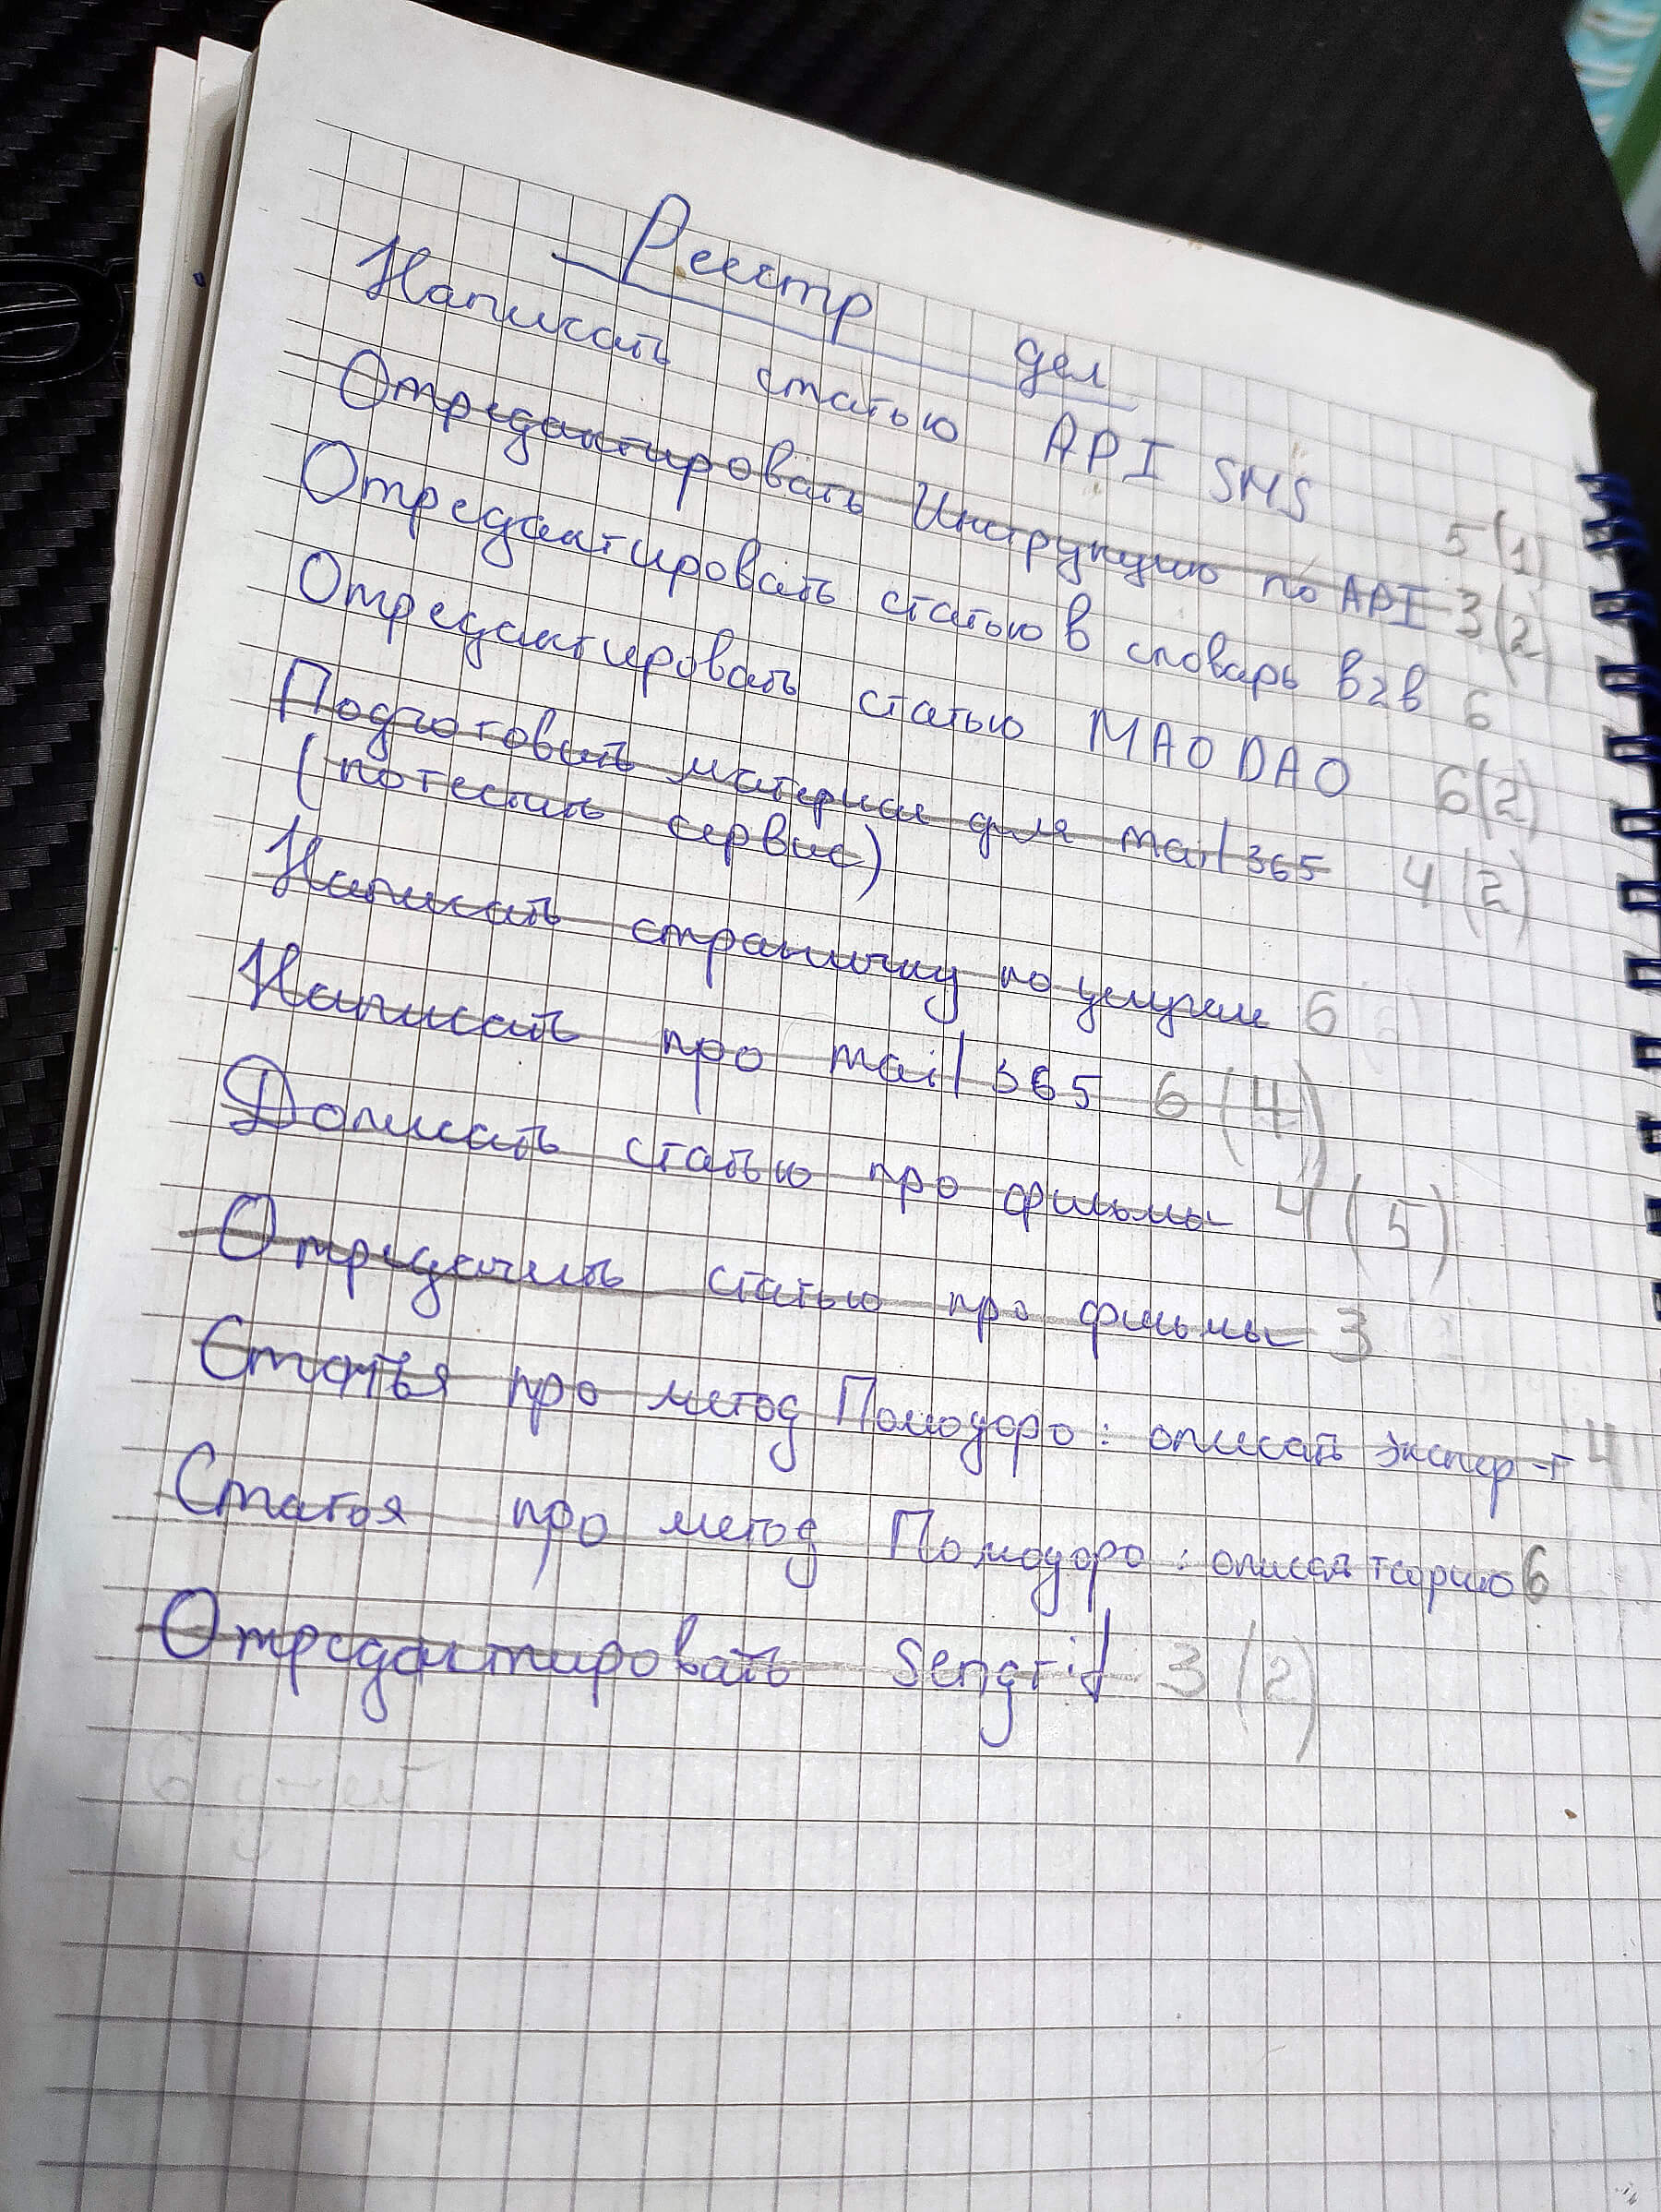 Реестр дел
Написать статью API SMS 5(1)
Отредактировать Инструкцию по API 3(2)
Отредактировать статью в словарь B2B 6
Отредактировать статью MAO DAO 6(2)
Подготовить материал для mail365 4(2)
(потестить сервис)
Написать страничку по услугам 6
Написать про mail365 6(4)
Дописать статью про фильмы 4(5)
Отредачить статью про фильмы 3
Статья про метод Помодоро: описать экспер-т 4
Статья про метод Помодоро: описать теорию 6
Отредактировать Sengrid 3(2)